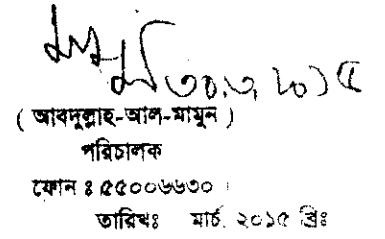 ৩০.৩.২০১৫
( আবদুল্লাহ-আল-মামুন )
পরিচালক
ফোন ঃ ৫৫০০৬৬৩০ ।
তারিখঃ মার্চ, ২০১৫ খ্রিঃ